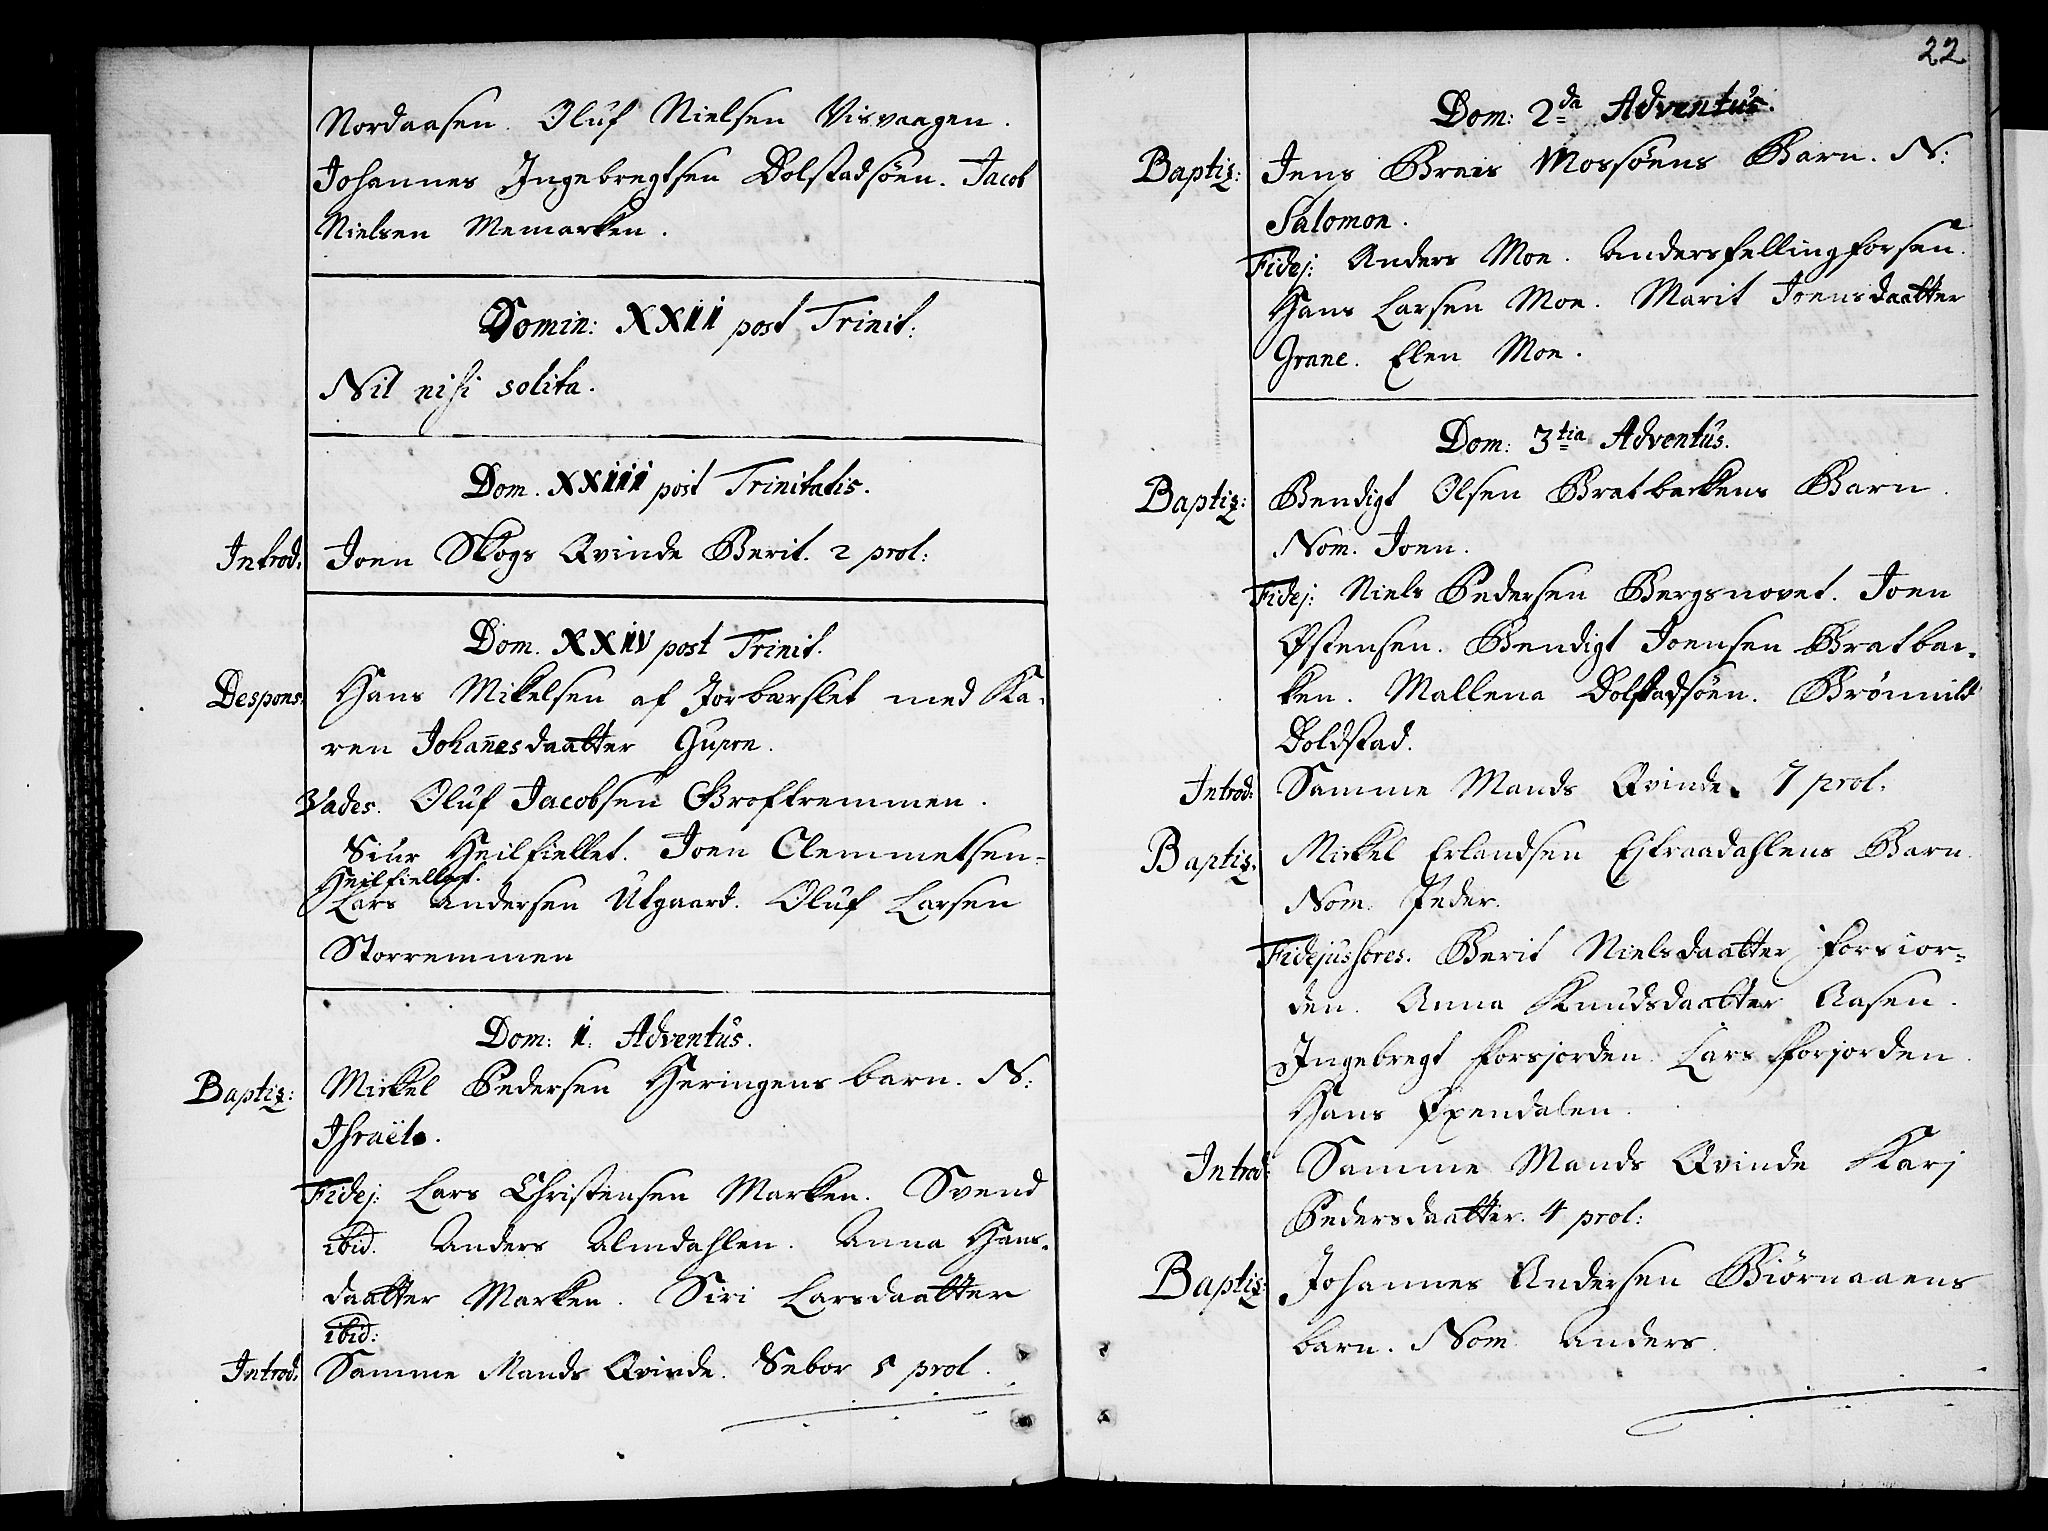 Nordaasen. Oluf Nielsen Visvaagen.
Johannes Ingebregtsen Dolstadsöen. Jacob
Nielsen Memarken.
Domin: XXII post Trinit:
Nil nisi solita.
Dom. XXIII post Trinitatis.
Introd: Joen Skogs Qvinde Berit. 2 prol:
Dom. XXIV post Trinit.
Despons: Hans Mikelsen af Jorbærslet med Ka-
ren Johan̄esdaatter
Vades. Oluf Jacobsen
Siur Heilfiellet. Joen Clemmetsen-
Heilfiellet.
Lars Andersen Utgaard. Oluf Larsen
Storremmen
Dom: 1. Adventus.
Baptiz: Mickel Pedersen Heringens barn. N:
Israël.
Fidej: Lars Christensen Marken. Svend
ibid. Anders Almdahlen. Anna Hans-
daatter Marken. Siri Larsdaatter
ibid:
Introd: Samme Mands Qvinde. Sebor 5 prol.
22
Dom: 2da Adventus.
Baptiz: Jens Mossöens Barn. N:
Salomon.
Fidej: Anders Moe. Anders fellingforsen.
Hans Larsen Moe. Marit Joensdaatter
Grane. Elen Moe.
Dom: 3tia Adventus.
Baptiz: Bendigt Olsen Bratbackens Barn.
Nom. Joen.
Fidej: Niels Pedersen Bergsnovet. Joen
Östensen. Bendigt Joensen Bratbac-
ken. Mallena Dolstadsöen. Brönnild
Doldstad.
Introd: Samme Mands Qvinde. 7 prol.
Baptiz. Mickel Erlandsen Barn.
Nom. Peder.
Fidejussores. Berit Nielsdaatter Forsior-
den. Anna Knudsdaatter Aasen.
Ingebregt Forsjorden. Lars Forsjorden.
Hans
Introd: Samme Mands Qvinde Karj
Pedersdaatter. 4 prol:
Baptiz: Johannes Andersen Biörnaaens
barn. Nom. Anders.